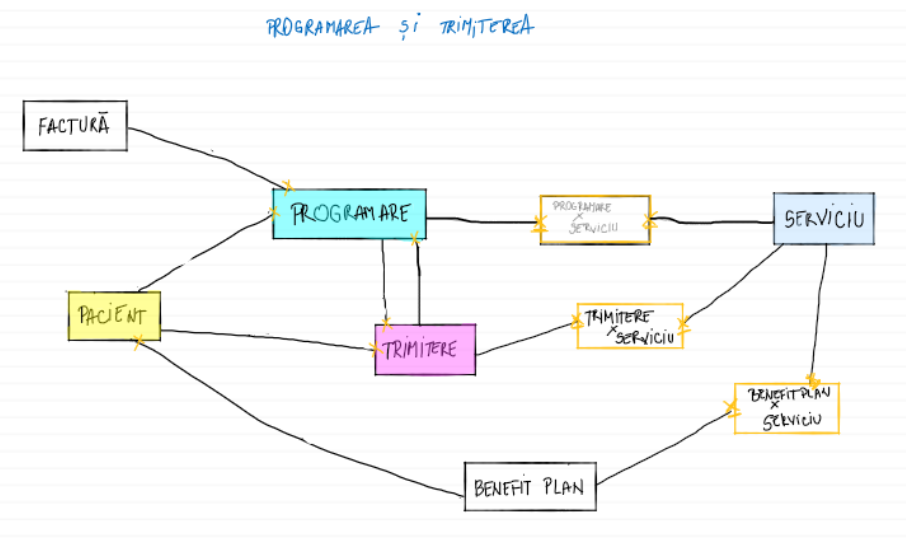 PROGRAMAREA și TRIMITEREA
FACTURĂ
PROGRAMARE
PROGRAMARE
x
SERVICIU
SERVICIU
PACIENT
TRIMITERE
TRIMITERE
x
SERVICIU
BENEFIT PLAN
x
SERVICIU
BENEFIT PLAN